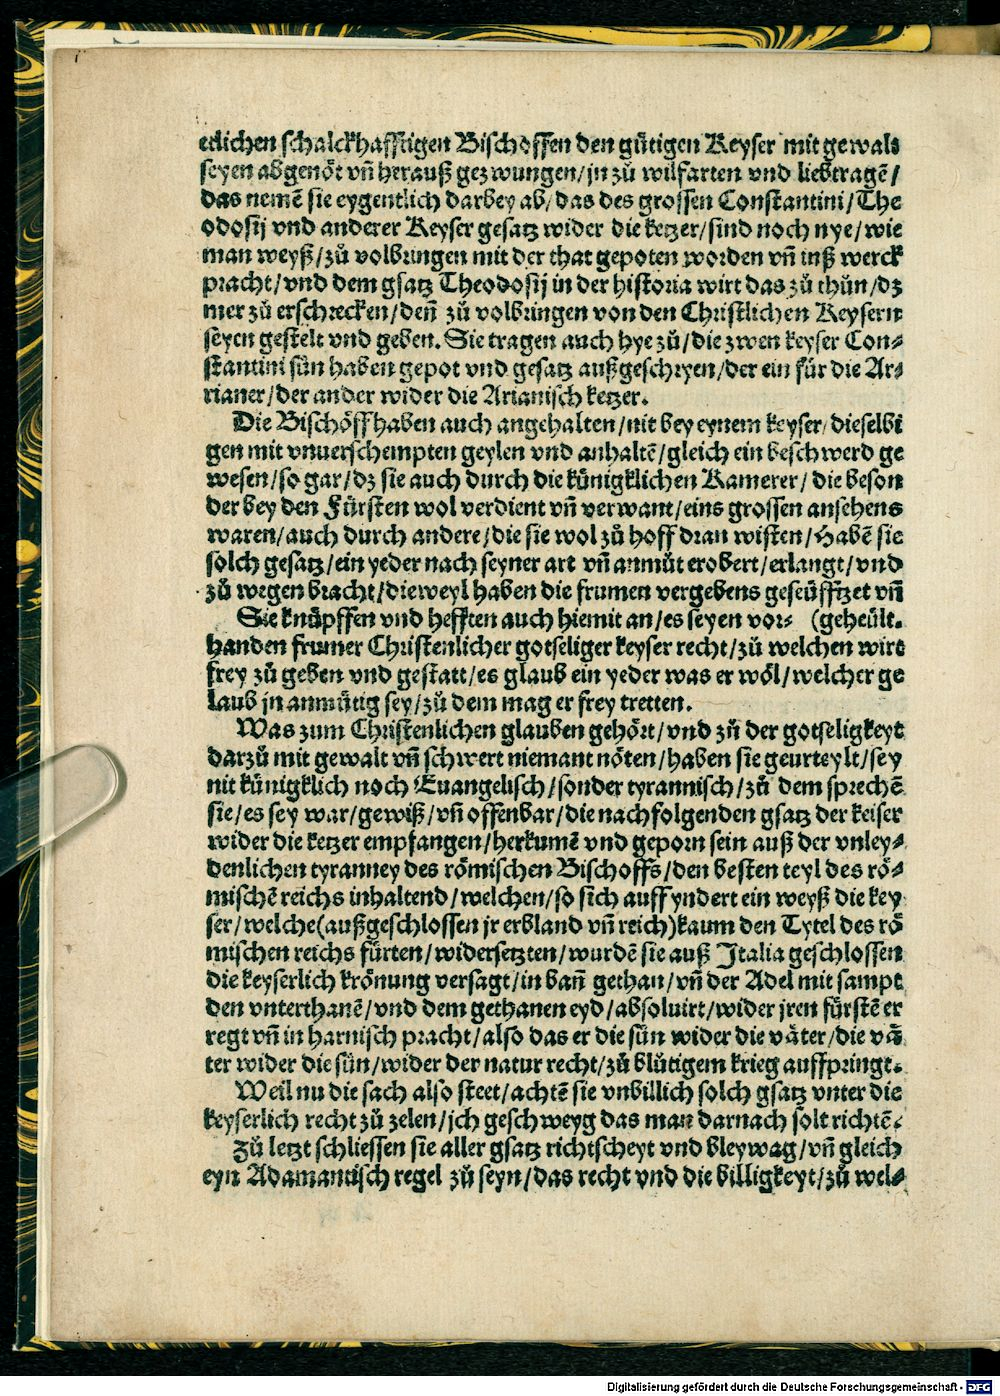 etlichen schalckhafftigen Bischoffen den gütigen Keyser mit gewalt
seyen abgenöt vñ herauß gezwungen/jn zů wilfarten vnd liebtragē/
das nemē sie eygentlich darbey ab/das des grossen Constantini/The
odosij vnd anderer Keyser gesatz wider die ketzer/sind noch nye/wie
man weyß/zů volbringen mit der that gepoten worden vñ inß werck
pracht/vnd dem gsatz Theodosij in der historia wirt das zů thůn/dz
mer zů erschrecken/deñ zů volbringen von den Christlichen Keysern
seyen gestelt vnd geben. Sie tragen auch hye zů/die zwen keyser Con⸗
stantini sün haben gepot vnd gesatz außgeschryen/der ein für die Ar⸗
rianer/der ander wider die Arianisch ketzer.
Die Bischöff haben auch angehalten/nit bey eynem keyser/dieselbi
gen mit vnuerschempten geylen vnd anhaltē/gleich ein beschwerd ge
wesen/so gar/dz sie auch durch die künigklichen Kamerer/die beson
der bey den Fürsten wol verdient vñ verwant/eins grossen ansehens
waren/auch durch andere/die sie wol zů hoff dran wisten/Habē sie
solch gesatz/ein yeder nach seyner art vñ anmůt erobert/erlangt/vnd
zů wegen bracht/dieweyl haben die frumen vergebens geseüfftzet vñ
Sie knüpffen vnd hefften auch hiemit an/es seyen vor⸗ (geheült.
handen frumer Christenlicher gotseliger keyser recht/zů welchen wirt
frey zů geben vnd gestatt/es glaub ein yeder was er wöl/welcher ge
laub jn anmütig sey/zů dem mag er frey tretten.
Was zum Christenlichen glauben gehört/vnd zů der gotseligkeyt
darzů mit gewalt vñ schwert niemant nöten/haben sie geurteylt/sey
nit künigklich noch Euangelisch/sonder tyrannisch/zů dem sprechē
sie/es sey war/gewiß/vñ offenbar/die nachfolgenden gsatz der keiser
wider die ketzer empfangen/herkumē vnd geporn sein auß der vnley⸗
denlichen tyranney des römischen Bischoffs/den besten teyl des rö⸗
mischē reichs inhaltend/welchen/so sich auff yndert ein weyß die key
ser/welche(außgeschlossen jr erbland vñ reich)kaum den Tytel des rö
mischen reichs fürten/widersetzten/wurdē sie auß Italia geschlossen
die keyserlich krönung versagt/in bañ gethan/vñ der Adel mit sampt
den vnterthanē/vnd dem gethanen eyd/absoluirt/wider jren fürstē er
regt vñ in harnisch pracht/also das er die sün wider die väter/die vä
ter wider die sün/wider der natur recht/zů blütigem krieg auffpringt.
Weil nu die sach also steet/achtē sie vnbillich solch gsatz vnter die
keyserlich recht zů zelen/jch geschweyg das man darnach solt richtē.
Zů letzt schliessen sie aller gsatz richtscheyt vnd bleywag/vñ gleich
eyn Adamantisch regel zů seyn/das recht vnd die billigkeyt/zů wel⸗
Digitalisierung gefördert durch die Deutsche Forschungsgemeinschaft - DFG